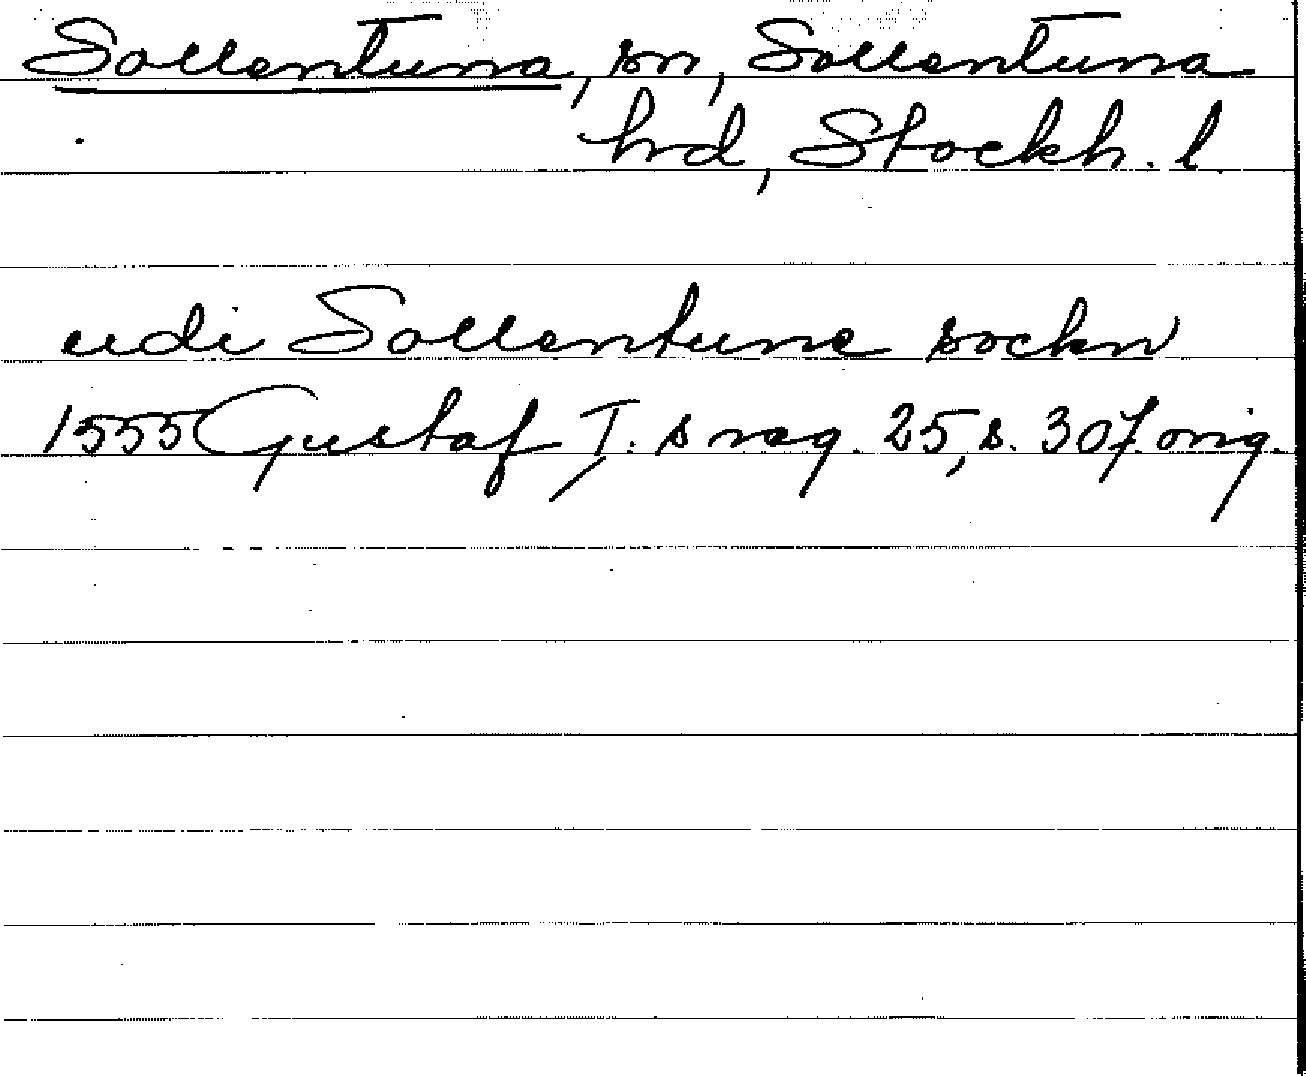 Sollentuna, sn, Sollentuna
hd, Stockh. l.
udi Sollentune sockn
1555 Gustaf I:s reg. 25, s. 307. orig.